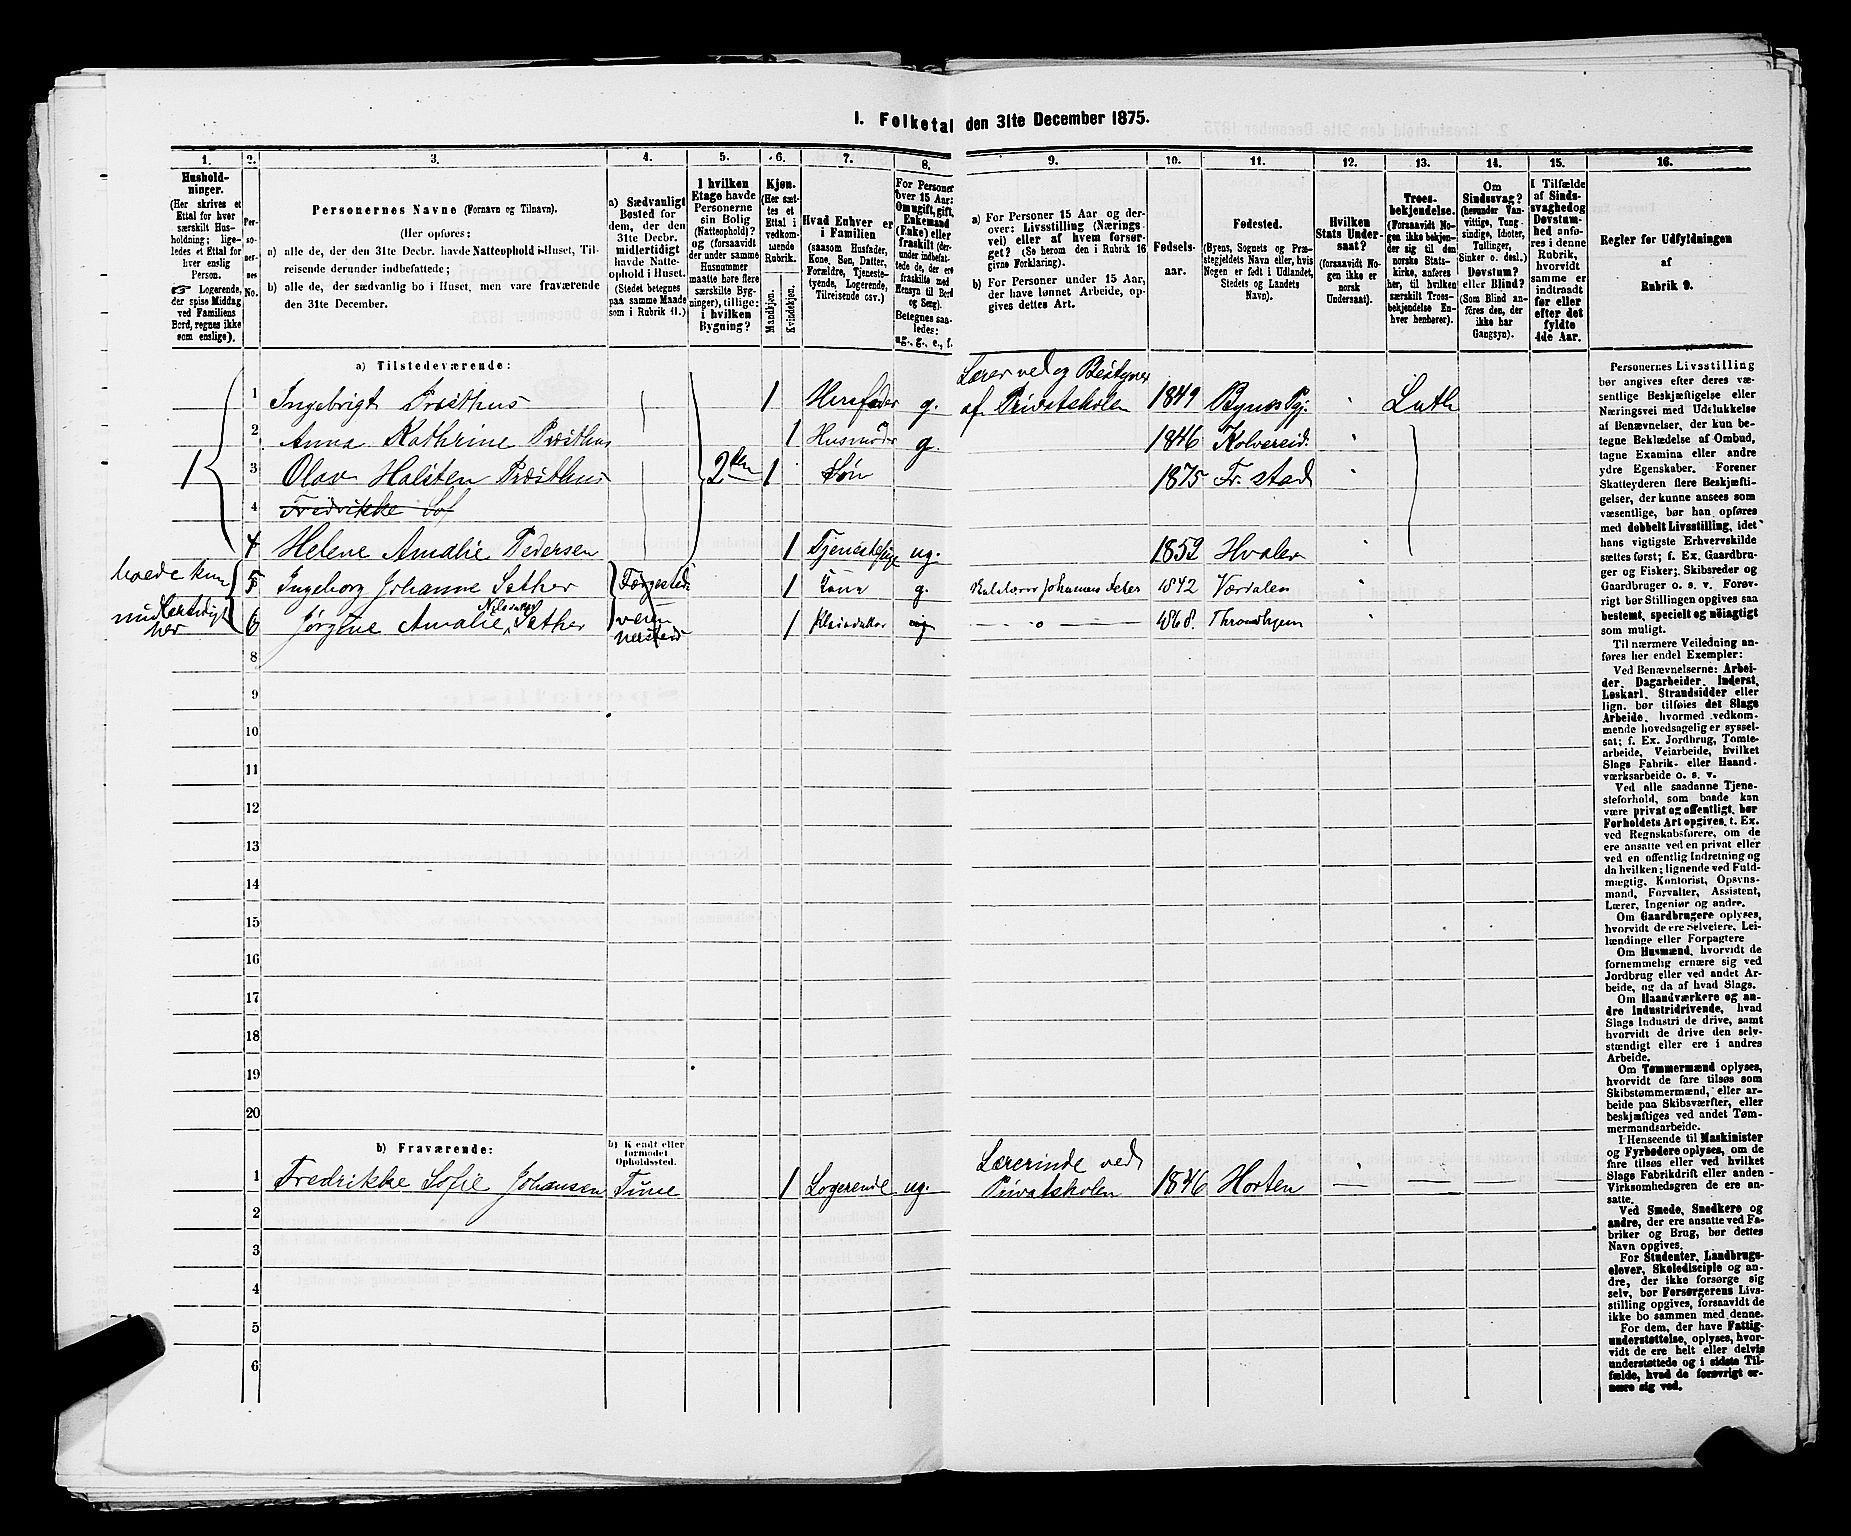 I. Folketal den 31te December 1875.
1. 2. 3. 4. 5. 6. 7. 8. 9. 10. 11. 12. 13. 14. 15. 16.
Hushold-
ninger.
(Her skrives et
Ettal for hver
særskilt Hus-
holdning; lige-
ledes et Ettal for
hver enslig
Person.
☞ Logerende,
der spise Middag
ved Familiens
Bord, regnes ikke
som enslige).
Per-
so-
ner-
nes
No.
Personernes Navne (Fornavn og Tilnavn).
(Her opføres:
a) alle de, der den 31te Decbr. havde Natteophold i Huset, Til-
reisende derunder indbefattede;
b) alle de, der sædvanlig bo i Huset, men vare fraværende
den 31te December.
a) Sædvanligt
Bosted for
dem, der den
31te Decbr.
midlertidigt
havde Natte-
ophold i Huset.
(Stedet betegnes
paa samme Maade
som i Rubrik 11.)
I hvilken
Etage havde
Personerne
sin Bolig
(Natteophold)?
og (forsaavidt
der under samme
Husnummer
maatte høre flere
særskilte Byg-
ninger), tillige:
i hvilken
Bygning?
Kjøn.
(Her sæt-
tes et
Ettal i
vedkom-
mende
Rubrik.
Mandkjøn.
Kvindekjøn.
Hvad Enhver er
i Familien
(saasom Husfader,
Kone, Søn, Datter,
Forældre, Tjeneste-
tyende, Logerende,
Tilreisende osv.)
For Personer
over 15 Aar:
Om ugift, gift,
Enkemand
(Enke) eller
fraskilt (der-
under indbefat-
tede de, der ere
fraskilte med
Hensyn til Bord
og Seng).
Betegnes saa-
ledes:
ug., g., e., f.
a) For Personer 15 Aar og der-
over: Livsstilling (Nærings-
vei) eller af hvem forsør-
get? (Se herom den i Rubrik 16
givne Forklaring).
b) For Personer under 15 Aar,
der have lønnet Arbeide, op-
gives dettes Art.
Fødsels-
aar.
Fødested.
(Byens, Sognets og Præ-
stegjeldets Navn eller, hvis
Nogen er født i Udlandet,
Stedets og Landets
Navn).
Hvilken
Stats Under-
saat?
(forsaavidt No-
gen ikke er
norsk
Undersaat).
Troes-
bekjendelse.
(Forsaavidt No-
gen ikke bekjen-
der sig til den
norske Stats-
kirke, anføres
her, til hvilken
særskilt Troes-
bekjendelse En-
hver henhører).
Om
Sindssvag?
(herunder Van-
vittige, Tung-
sindige, Idioter,
Tullinger,
Sinker o. desl.)
Døvstum?
eller Blind?
(Som Blind an-
føres den, der
ikke har
Gangsyn).
I Tilfælde
af Sinds-
svaghed og
Døvstum-
hed anfø-
res i denne
Rubrik,
hvorvidt
samme er
indtraadt
før eller
efter det
fyldte
4de Aar.
Regler for Udfyldningen
af
Rubrik 9.
a) Tilstedeværende:
1 Ingebrigt Præsthus 1 Husfader g. Lærer ved og Bestyrer af Privatskolen 1849 Bynes Pgj. Luth
2 Anna Kathrine Præsthus 1 Husmoder g. 1846 Kolvereid.
1 3 Olav Halsten Præsthus 2den 1 Søn 1875 Fr.stad
4 Fredrikke Sof
4 Helene Amalie Pedersen 1 Tjenestepige ug. 1852 Hvaler
boede kun
midlertidigt
her
5 Ingeborg Johanne Sather 1 Kone g. 1842 Værdalen
6 Jørgine Amalie Sather 1 ug — o — 1868. Throndhjem
8
9
10
11
12
13
14
15
16
17
18
19
20
b) Fraværende:
b) Kendt eller
formodet
Opholdssted.
1 Fredrikke Sofie Johansen Tune 1 Logerende ug. Lærerinde ved Privatskolen 1846 Horten — — — —
2
3
4
5
6
Personernes Livsstilling
bør angives efter deres væ-
sentlige Beskjæftigelse eller
Næringsvei med Udelukkelse
af Benævnelser, der kun be-
tegne Beklædelse af Ombud,
tagne Examina eller andre
ydre Egenskaber. Forener
Skatteyderen flere Beskjæfti-
gelser, der kunne ansees som
væsentlige, bør han opføres
med dobbelt Livsstilling, idet
hans vigtigste Erhvervskilde
sættes først; f. Ex. Gaardbru-
ger og Fisker; Skibsreder og
Gaardbruger o. s. v. Forøv-
rigt bør Stillingen opgives saa
bestemt, specielt og nøiagtigt
som muligt.
Til nærmere Veiledning an-
føres her endel Exempler:
Ved Benævnelserne: Arbei-
der, Dagarbeider, Inderst,
Løskarl, Strandsidder eller
lign. bør tilføies det Slags
Arbeide, hvormed vedkom-
mende hovedsagelig er syssel-
sat; f. Ex. Jordbrug, Tomte-
arbeide, Veiarbeide, hvilket
Slags Fabrik- eller Haand-
værksarbeide o. s. v.
Ved alle saadanne Tjene-
steforhold, som baade kan
være privat og offentligt, bør
Forholdets Art opgives, t. Ex.
ved Regnskabsførere, om de
ere ansatte ved en privat eller
ved en offentlig Indretning og
da hvilken; lignende ved Fuld-
mægtig, Kontorist, Opsyns-
mand, Forvalter, Assistent,
Lærer, Ingeniør og andre.
Om Gaardbrugere oplyses,
hvorvidt de ere Selveiere, Lei-
lændinge eller Forpagtere
Om Husmænd, hvorvidt de
fornemmelig ernære sig ved
Jordbrug eller ved andet Ar-
beide, og da af hvad Slags.
Om Haandværkere og an-
dre Industridrivende, hvad
Slags Industri de drive, samt
hvorvidt de drive den selv-
stændigt eller ere i andres
Arbeide.
Om Tømmermænd oplyses,
hvorvidt de fare tilsøs som
Skibstømmermænd, eller ar-
beide paa Skibsværfter, eller
beskjæftiges ved andet Tøm-
mermandsarbeide.
I Henseende til Maskinister
og Fyrbødere oplyses, om de
fare tilsøs eller ved hvilket
Slags Fabrikdrift eller anden
Virksomhedsgren de ere an-
satte.
Ved Smede, Snedkere og
andre, der ere ansatte ved Fa-
briker og Brug, bør dettes
Navn opgives.
For Studenter, Landbrugs-
elever, Skoledisciple og an-
dre, der ikke forsørge sig
selv, bør Forsørgerens Livs-
stilling opgives, forsaavidt de
ikke bo sammen med denne.
For dem, der have Fattig-
understøttelse, oplyses, hvor-
vidt de ere helt eller delvis
understøttede og i sidste Til-
fælde, hvad de forøvrigt er-
nære sig ved.